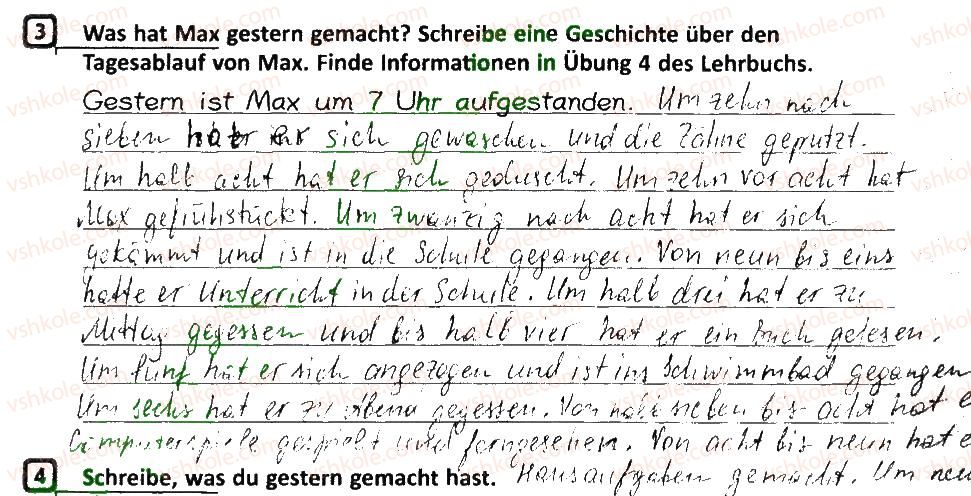 3 Was hat Max gestern gemacht? Schreibe eine Geschichte über den
Tagesablauf von Max. Finde Informationen in Übung 4 des Lehrbuchs.
Gestern ist Max um 7 Uhr aufgestanden. Um zehn nach
sieben hat er sich gewaschen und die Zähne geputzt.
Um halb acht hat er sich geduscht. Um zehn vor acht hat
Max gefrühstückt. Um zwanzig nach acht hat er sich
gekämmt und ist in die Schule gegangen. Von neun bis eins
hatte er Unterricht in der Schule. Um halb drei hat er zu
Mittag gegessen und bis halb vier hat er ein Buch gelesen.
Um fünf hat er sich angezogen und ist ins Schwimmbad gegangen
Um sechs hat er zu Abend gegessen. Von halb sieben bis acht hat e
Computerspiele gespielt und ferngesehen. Von acht bis neun hat e
Hausaufgaben gemacht. Um neun
4 Schreibe, was du gestern gemacht hast.